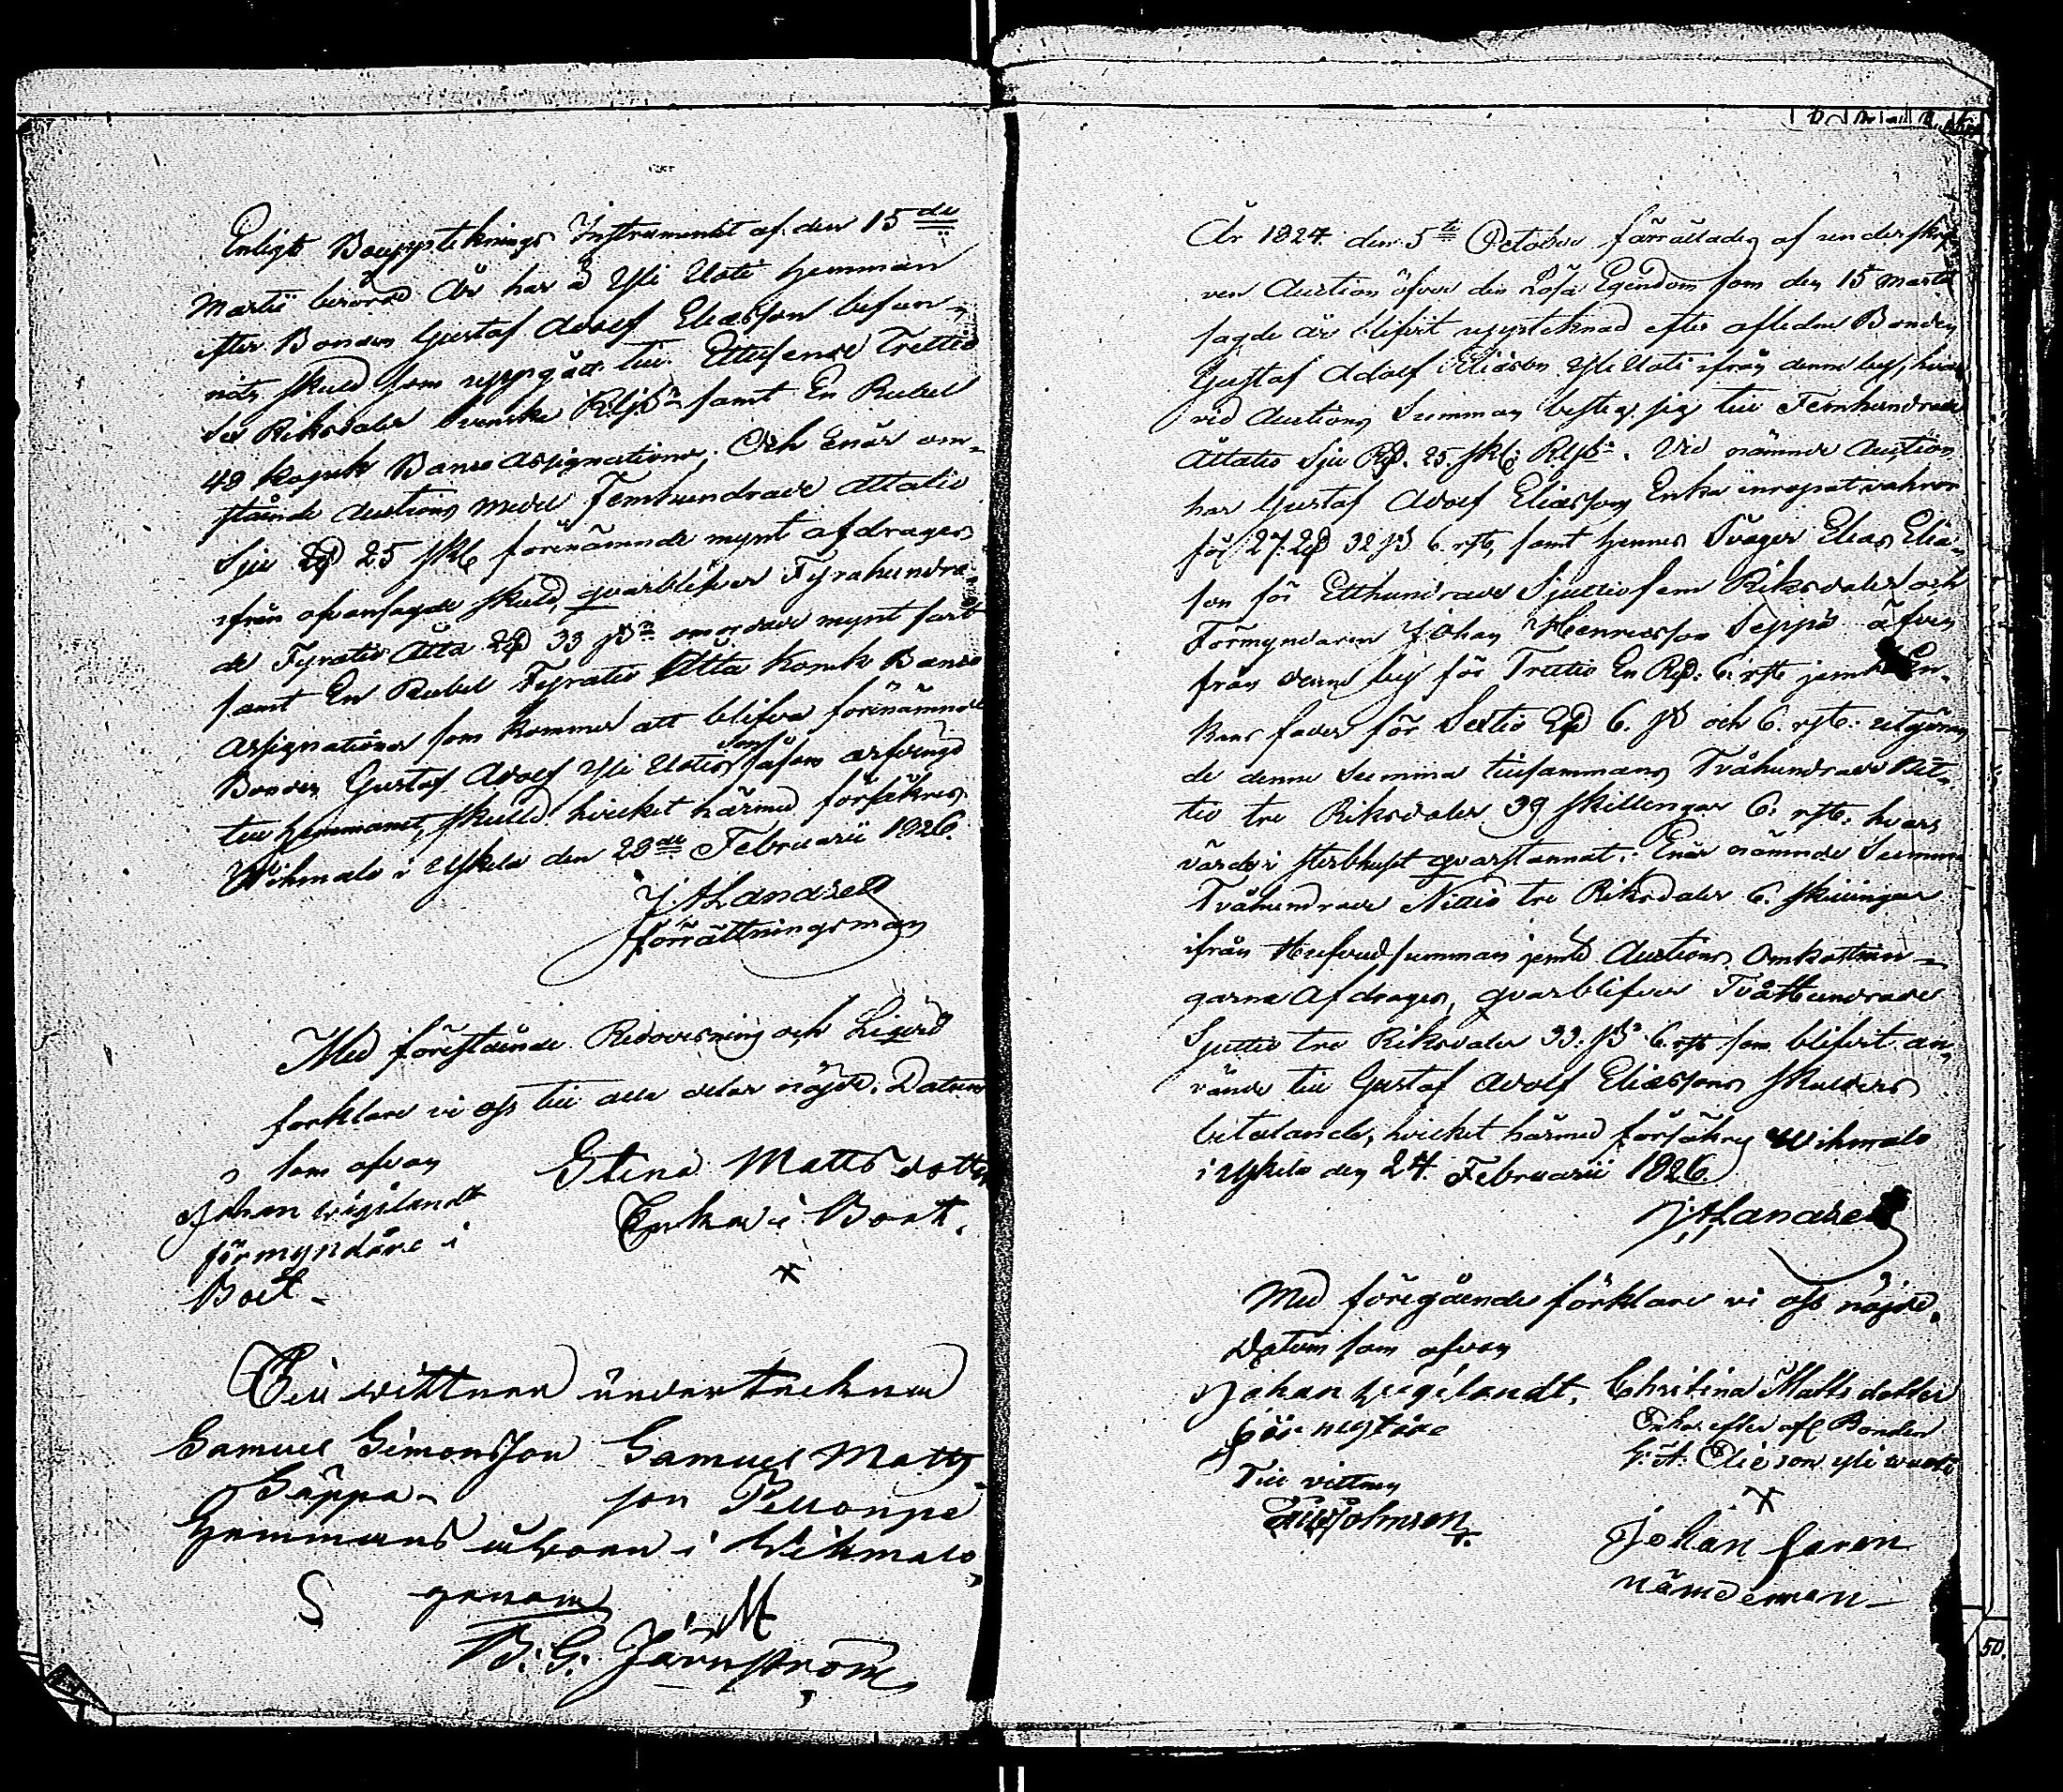 Enligt Bouppteknings Instrumentet af den 15de
Martii berörde År har å Yli Uoti hemman
efter Bonden Gustaf Adolf Eliasson befun-
nits skuld som uppgått till Ettusende Trettio
Sex Riksdaler Svenska RGS samt En Rubel
48 kopek Banco Assignationer. Och Enär om-
stående Auctions medel Femhundrade Åttatio
Sju Rd 25 skl förenämnde mynt afdrages
ifrån ofvansagde skuld, qvarblifver Fyrahundra-
de Fyratio Åtta Rd 33 s omrörde mynt sort
samt En Rubel Fyratio Åtta Kopek Banco
Assignationer som kommer att blifva förenämnde
Bonden Gustaf Adolf Yli Uotis sons såsom arfvinge
till hemmanet, skuld hvilket härmed försäkres.
Wihmalo i Uskela den 28de Februarii 1826.
J. A. Landzell
förrättningsman
Med förestående Redovisning och Liqvid
forklare vi oss till alla delar nöjde. Datum
som ofvan
Stina Matts dotter
Enka i Boet.
x
Johan wigelandt
förmyndare i
Boet
Till wittnen undertecknar
Samuel Simonsson Samuel Matts
Säppä son Pelloupe
Hemmans åboer i Wihmalo
genom
B. G. Järnström
År 1824 den 5te October förrättades af underskrif
ven Auction öfver den Lösa Egendom som den 15 Martii
sagde år blifvit uppteknad efter afledne Bonden
Gustaf Adolf Eliason Yli Uoti ifrån denne by, hvar
vid Auctions Summan besteg sig till Femhundrade
Åttatio Sju Rd. 25. skl. RGS. Vid nämnde Auction
har Gustaf Adolf Eliassons Enka inropat vahror
för 27 Rd 32 s 6 rst, samt hennes Svåger Elias Elia-
son för Etthundrade Sjuttio fem Riksdaler och
Förmyndaren Johan Henricsson Seppä äfven
från denne by för Trettio En Rd. 6 rst jemte En-
kans fader för Sextio Rd 6. s och 6. rst. utgöran
de denne Summa tillsammans Tvåhundrade Nit-
tio tre Riksdaler 39 skillingar 6. rst. hvars
värde i sterbhuset qvarstannat. Enär nämnde Summa
Tvåhundrade Nittio tre Riksdaler 6. skillingar
ifrån Hufvudsumman jemte Auctions Omkostnin-
garna Afdrages, qvarblifver Tvåhundrade
Sjuttio tre Riksdaler 33. s 6 rst som blifvit an-
vände till Gustaf Adolf Eliassons skulders
betalande, hvilket härmed försäkres Wihmalo
i Uskela den 24. Februarii 1826.
J. A. Landzell
Med föregående förklare vi oss nöjde.
Datum som ofvan
Johan wigelandt. Christina Matts dotter
Enka efter afl Bonden
G: A: Elieson yli wuoti
x
Till vittnen
Johan Saren
nämdeman
50.